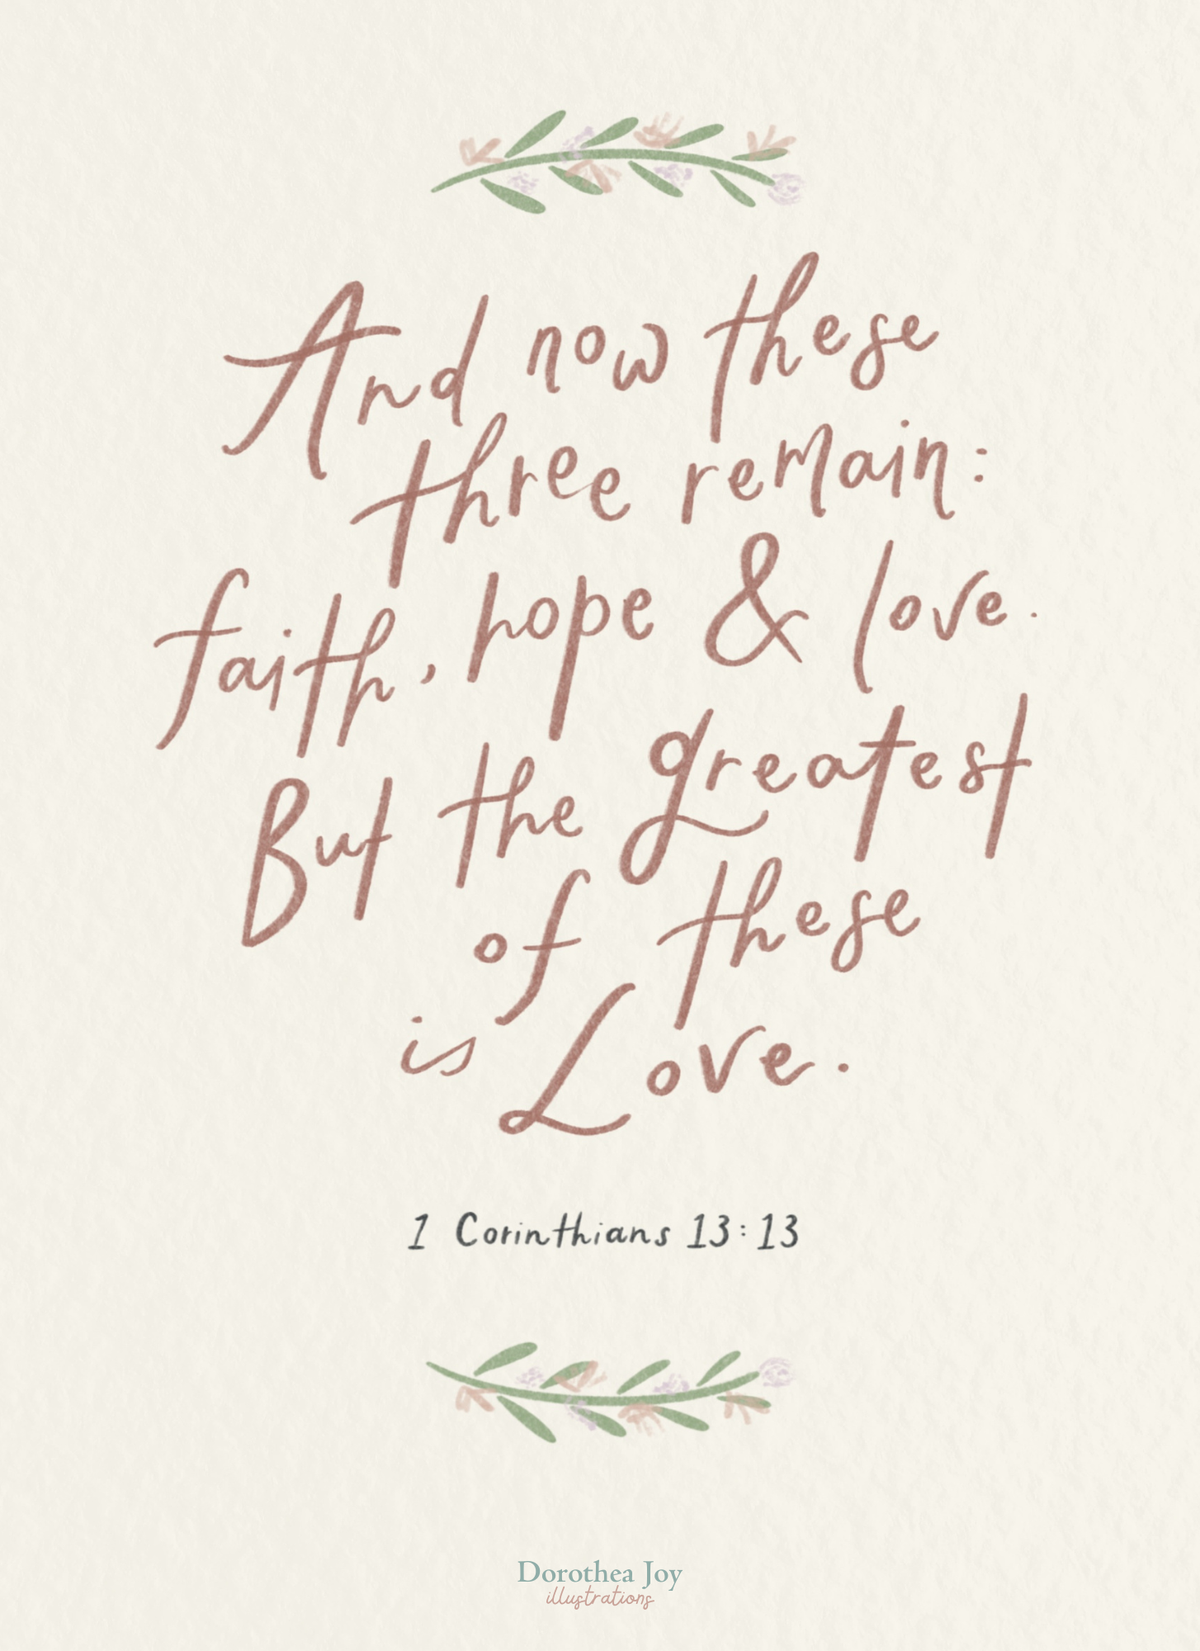 And now these
three remain:
faith, hope & love.
But the greatest
of these
is Love.
1 Corinthians 13:13
Dorothea Joy
illustrations